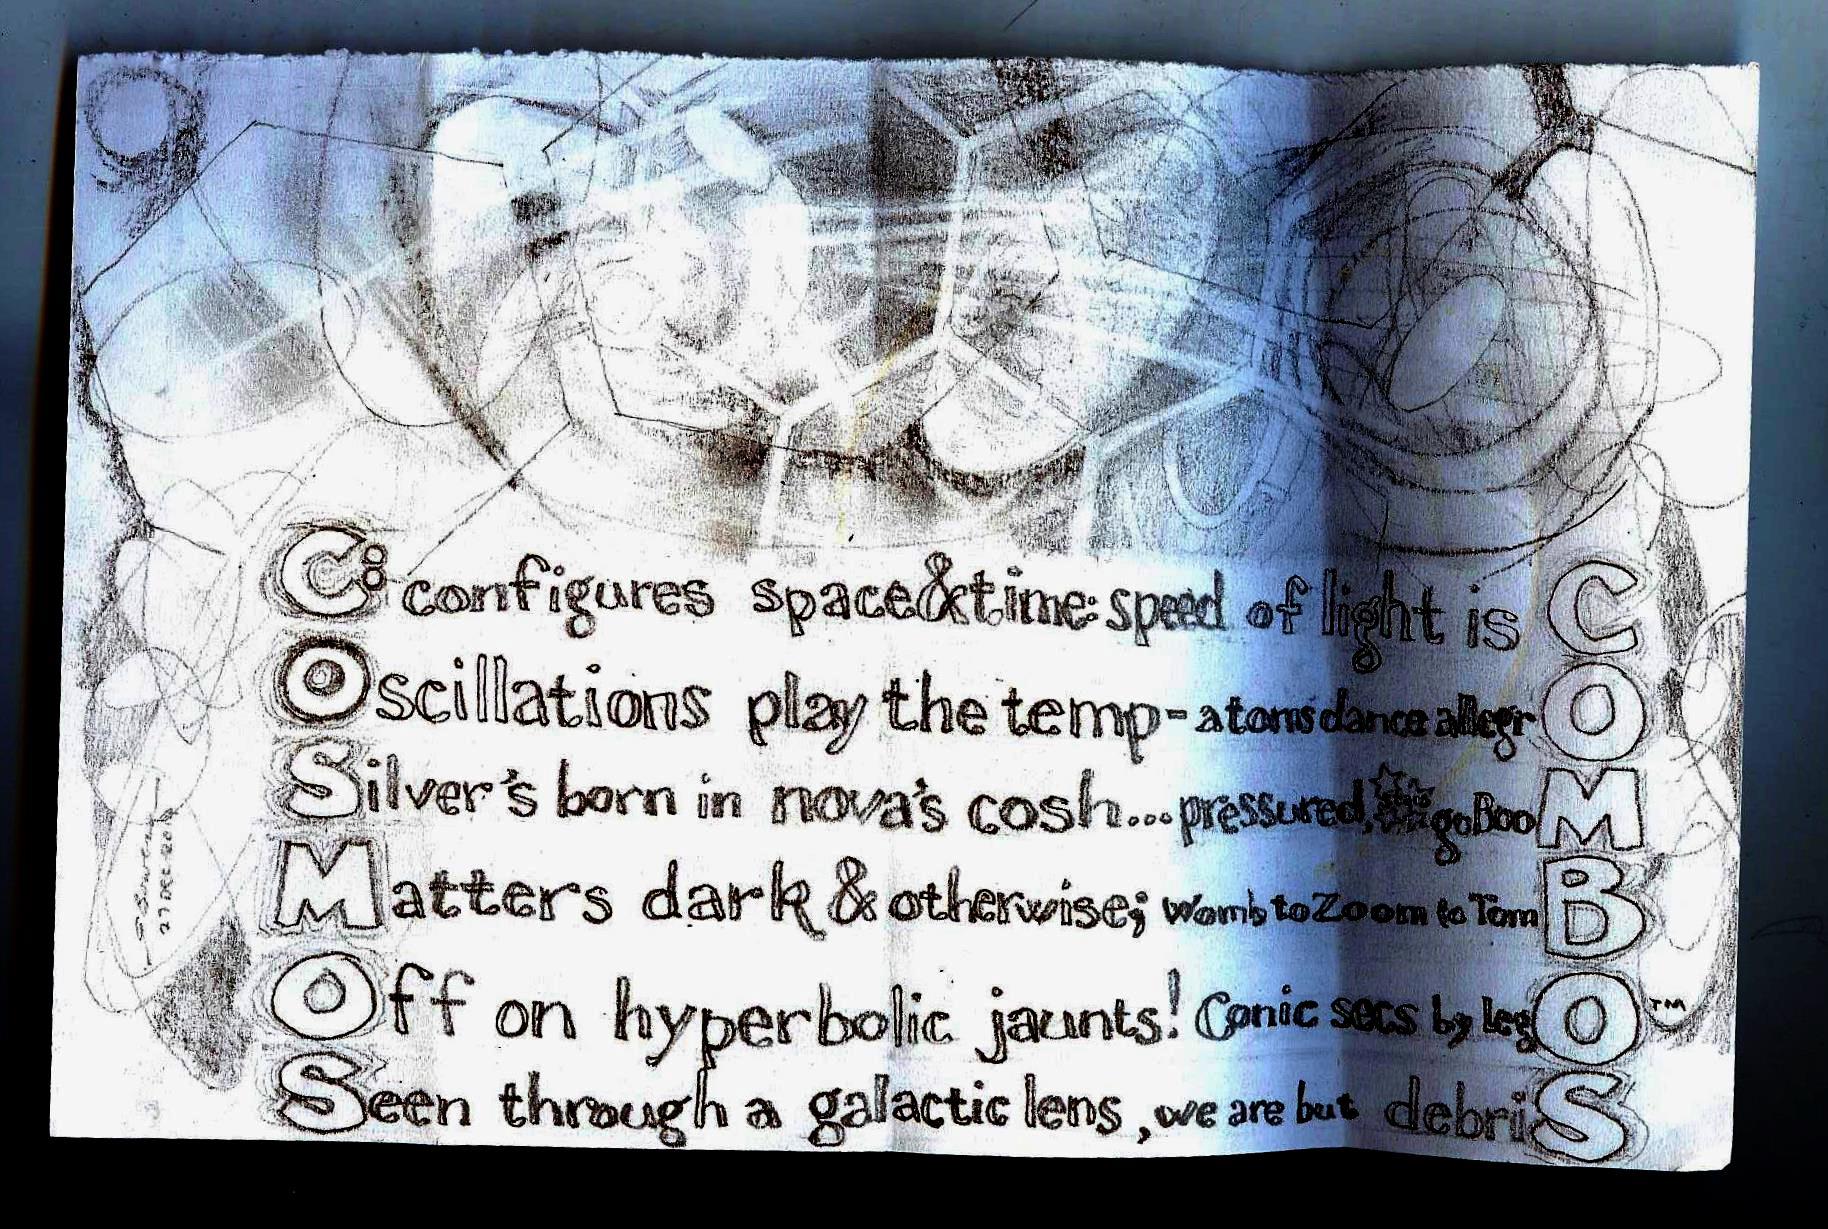 C: configures space&time: speed of light is C
Oscillations play the temp-atoms dance allegrO
Silver's born in nova's cosh...pressured, go BooM
Matters dark & otherwise; Womb to Zoom to TomB
Off on hyperbolic jaunts! Conic secs by legO™
Seen through a galactic lens, we are but debriS
27 DEC 201